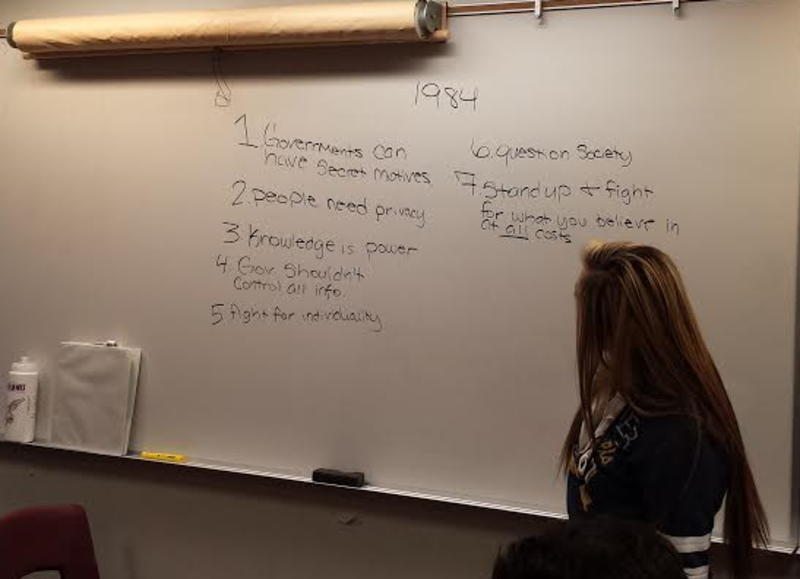 1984
1. Governments can
have secret motives
2. people need privacy
3 Knowledge is power
4. Gov. Shouldn't
control all info.
5 fight for individuality
6. question Society
7. Stand up + fight
for what you believe in
at all costs